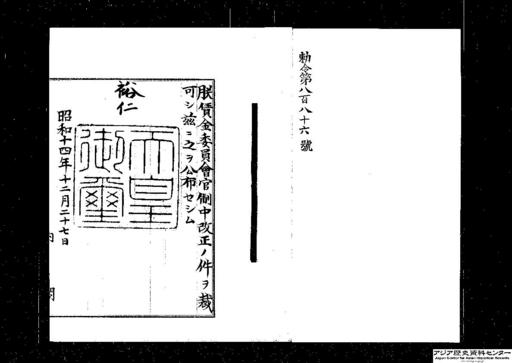 勅令第八百八十六號
朕賃金委員會官制中改正ノ件ヲ裁
可シ茲ニ之ヲ公布セシム
裕仁
天皇
御璽
昭和十四年十二月二十七日
内
アジア歴史資料センター
Japan Center for Asian Historical Records